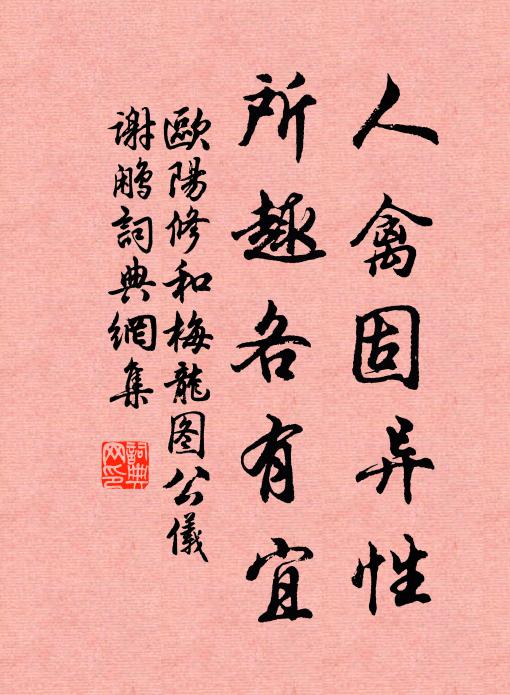 人禽固异性
所趣各有宜
歐陽修和梅龍图公儀
谢鹇詞典網集
詞典网印